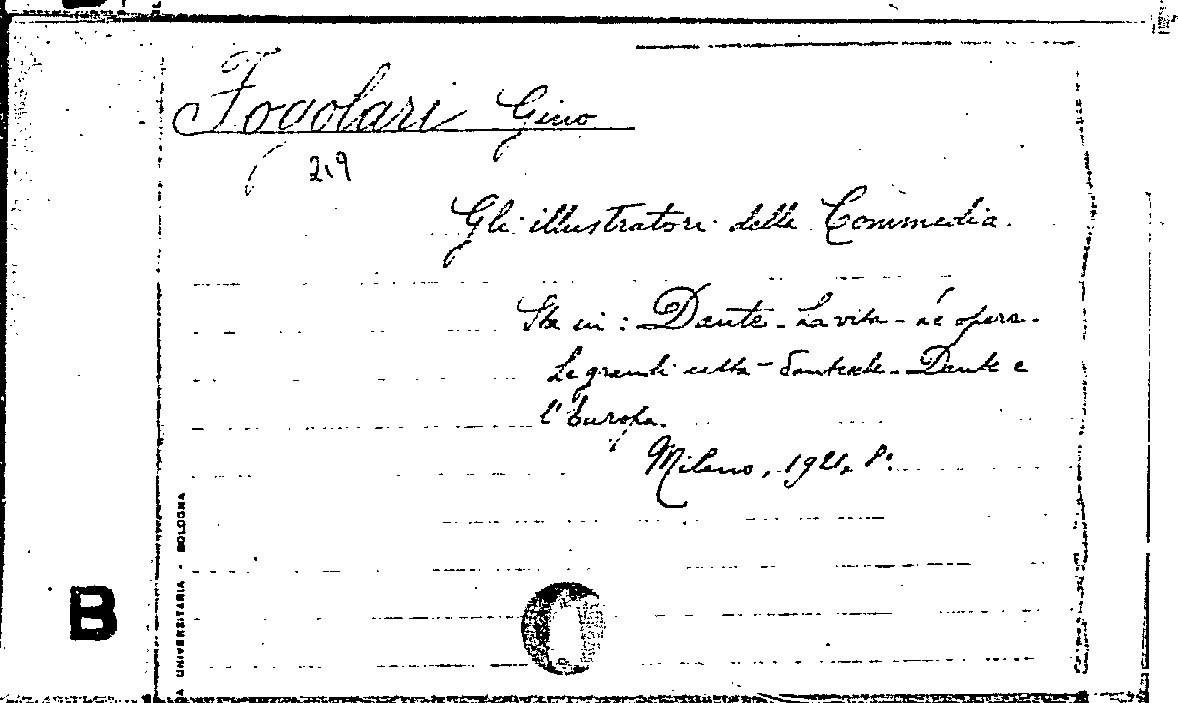 Fogolari Gino
219
Gli illustratori della Commedia.
Sta in: Dante - La vita - Le opere -
Le grandi città dantesche - Dante e
l'Europa.
Milano, 1921, 8.
A UNIVERSITARIA - BOLOGNA
B